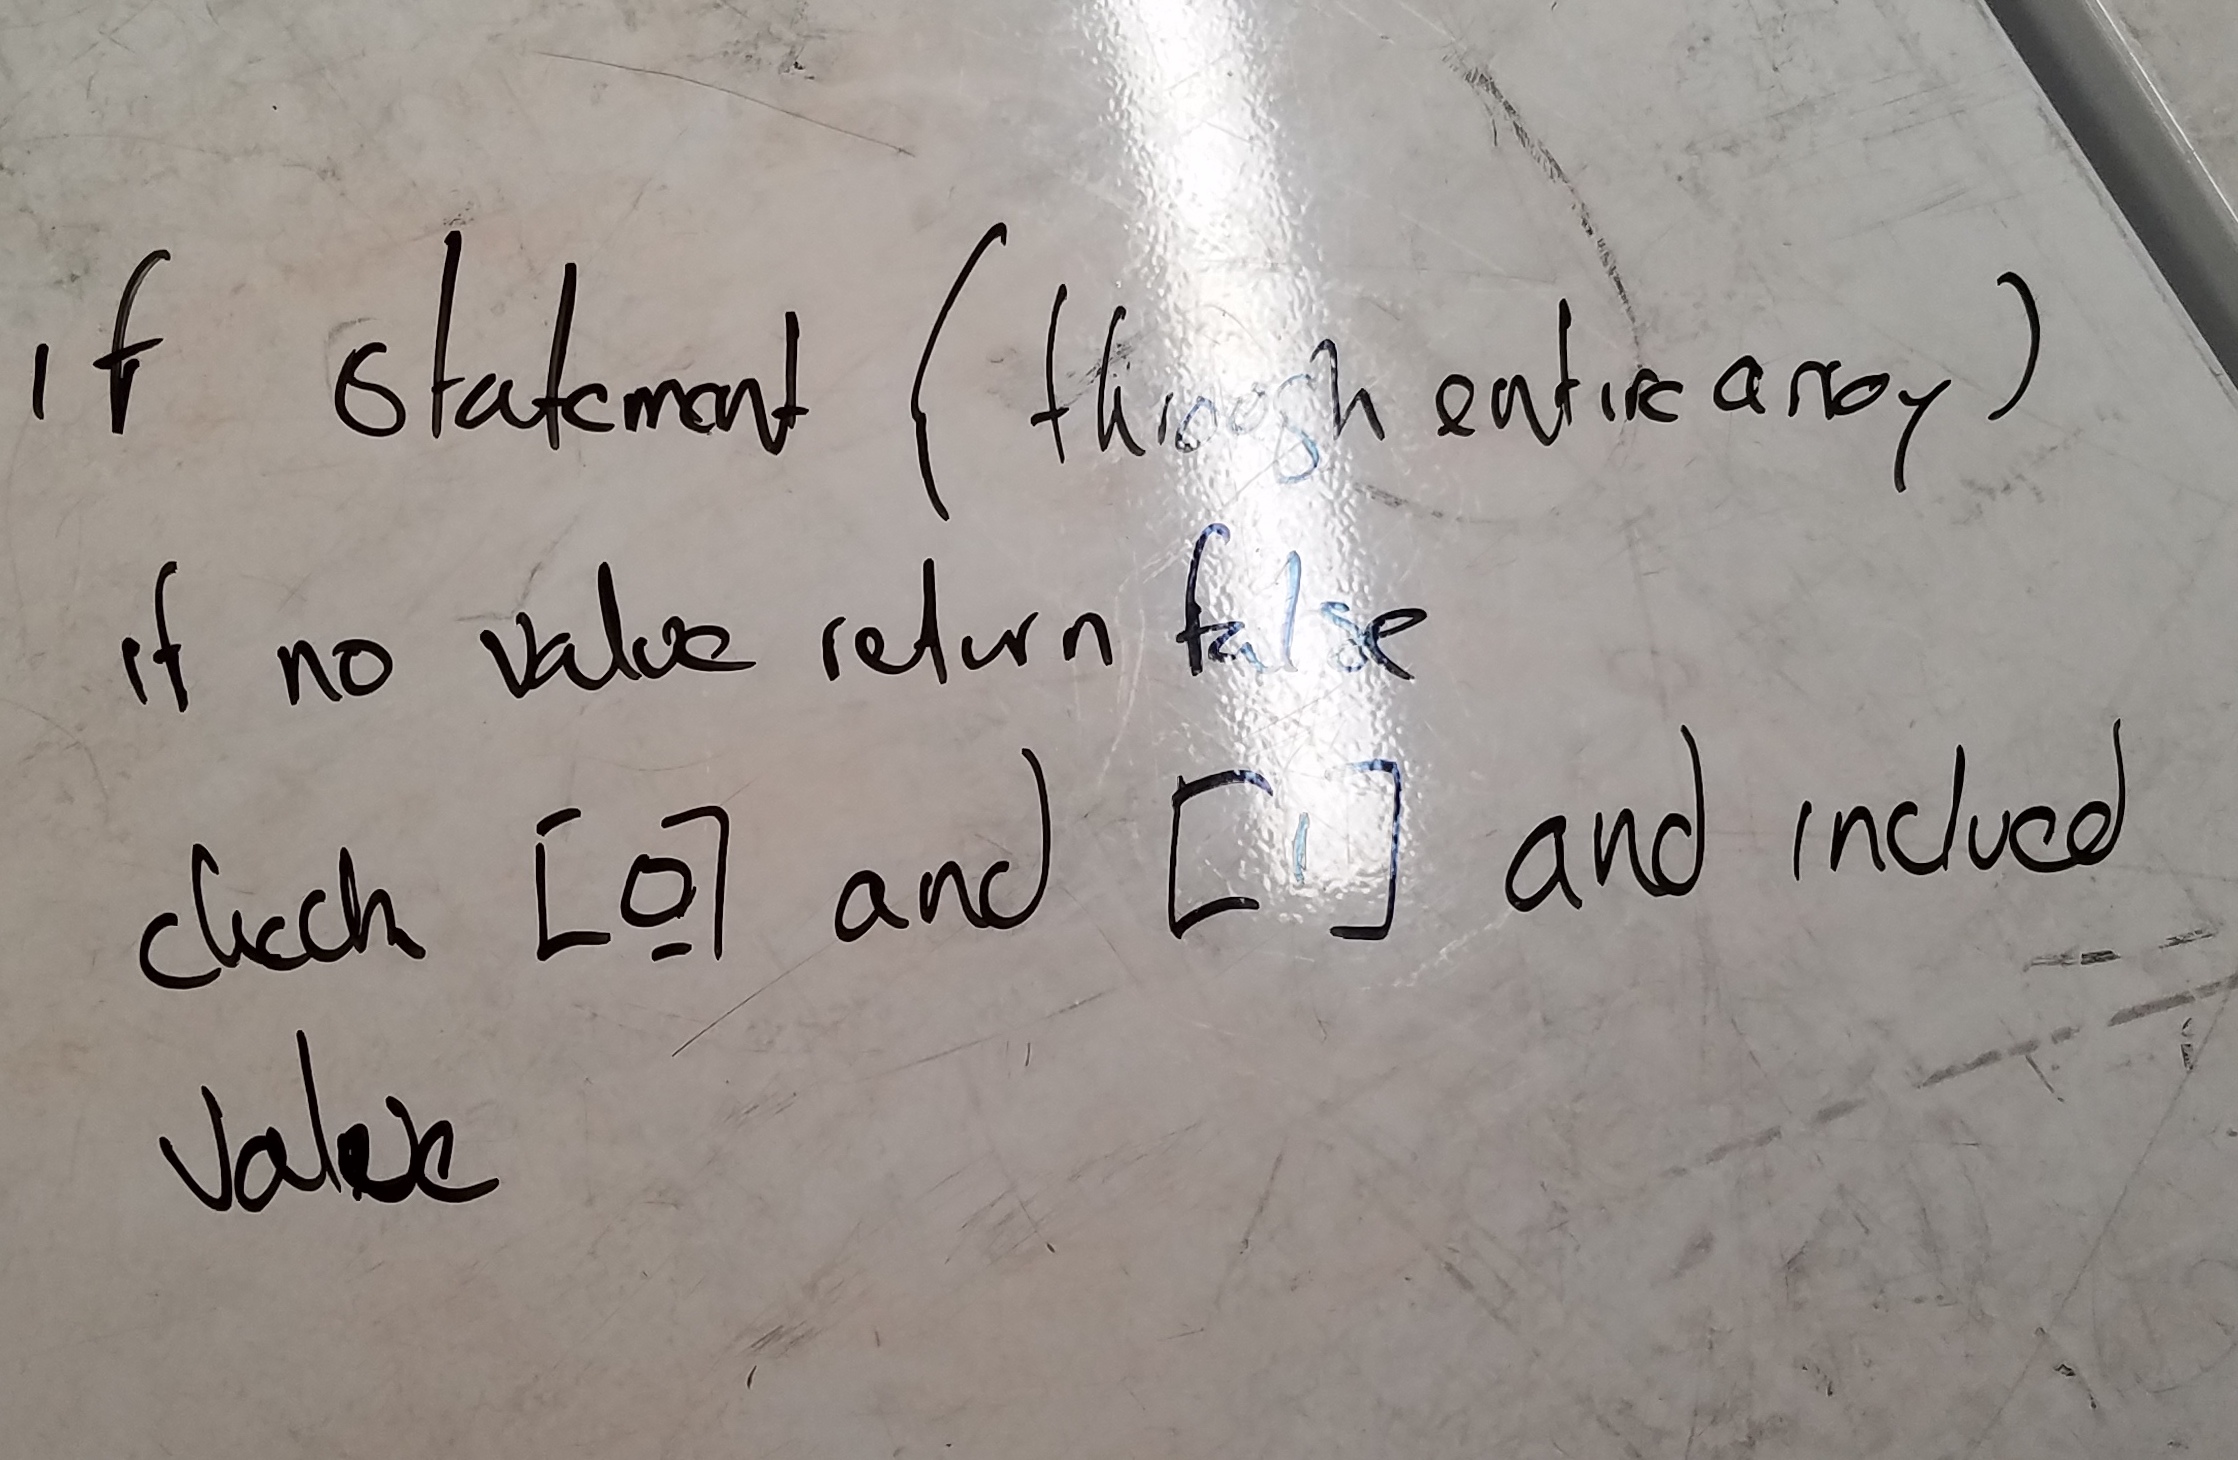 if statement (through entire array)
if no value return false
check [0] and [1] and inclued
value